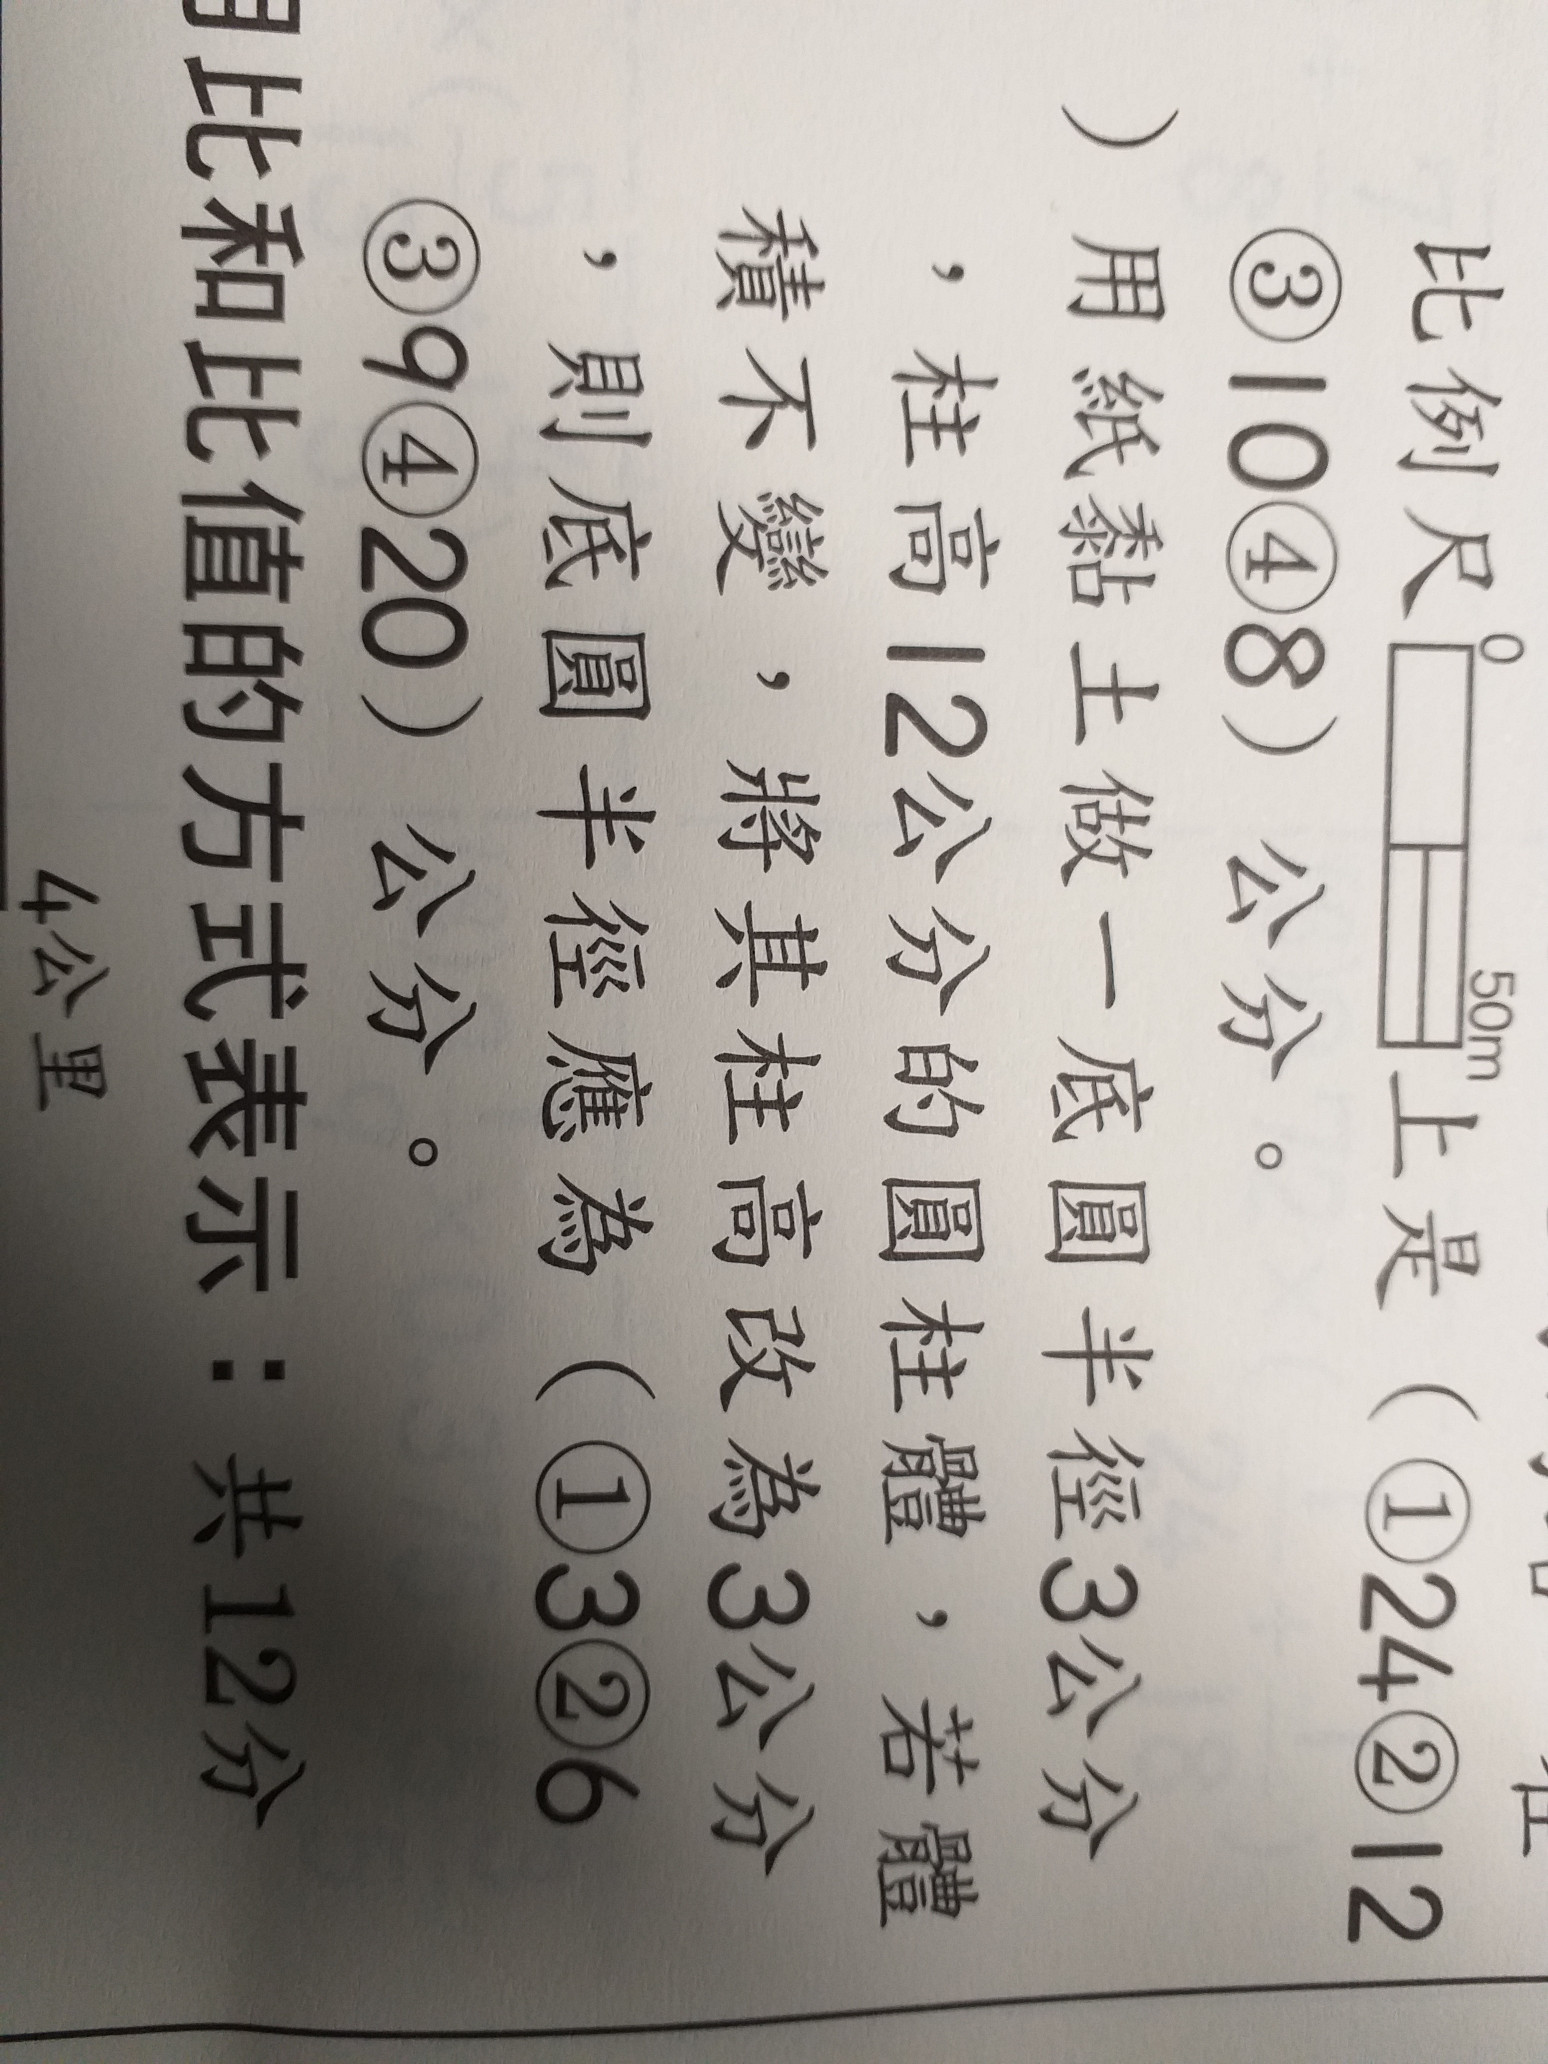 在
比例尺 0 50m 上是（①24②12
③10④8）公分。
）用紙黏土做一底圓半徑3公分
，柱高12公分的圓柱體，若體
積不變，將其柱高改為3公分
，則底圓半徑應為（①3②6
③9④20）公分。
用比和比值的方式表示：共12分
4公里